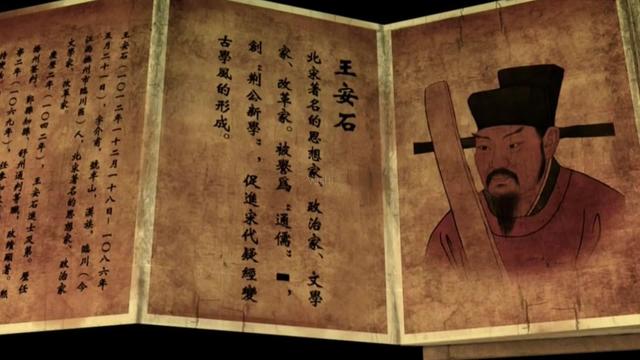 王安石
北宋著名的思想家、政治家、文學
家、改革家。被譽爲“通儒”，
創“荊公新學”，促進宋代疑經變
古學風的形成。
王安石（一〇二一年一十二月一十八日－一〇八六年
五月二十一日），字介甫，號半山，漢族，臨川（今
江西撫州市臨川區）人，北宋著名的思想家、政治家
文學家、改革家。
慶曆二年（一〇四二年），王安石進士及第。歷任
揚州簽判、鄞縣知縣、舒州通判等職，政績顯著。熙
寧二年（一〇六九年），任參